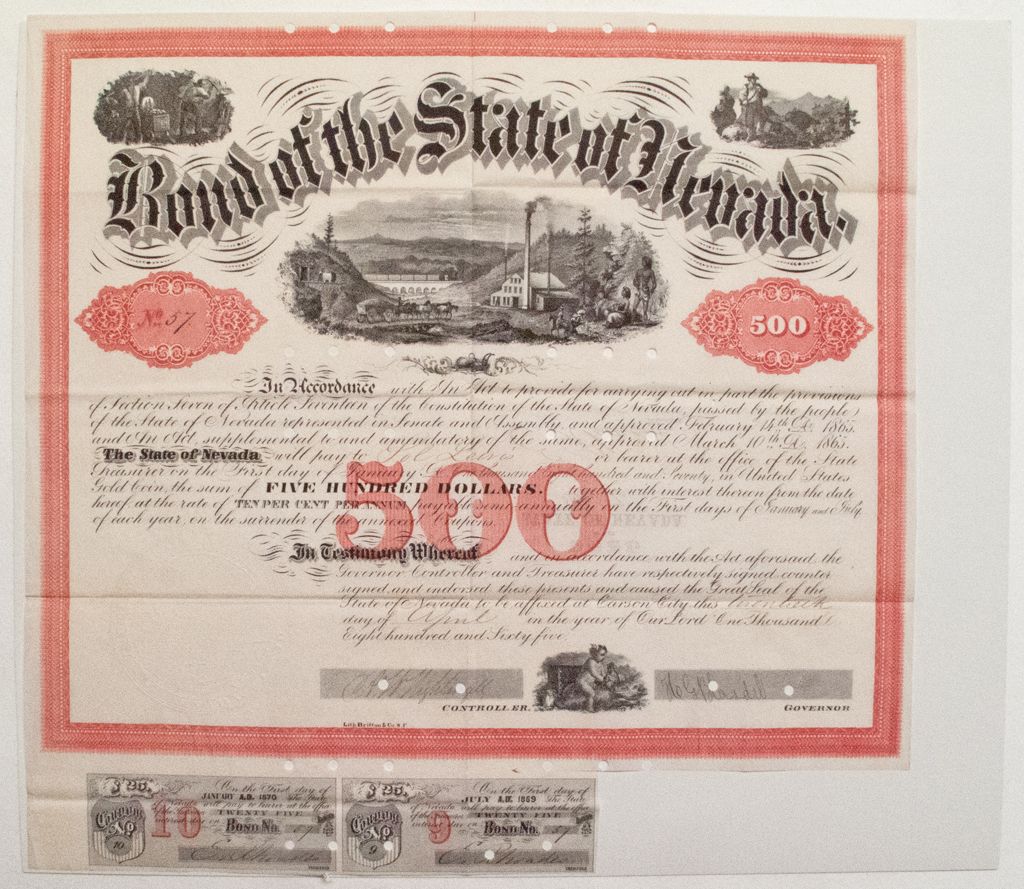 Bond of the State of Nevada.
No. 57.
500
In Accordance with An Act to provide for carrying out in part the provisions
of Section Seven of Article Seventeen of the Constitution of the State of Nevada, passed by the people
of the State of Nevada represented in Senate and Assembly, and approved February 14th A. 1865.
and An Act, supplemental to and amendatory of the same, approved March 10th A. 1865.
The State of Nevada will pay to or bearer at the office of the State
Treasurer on the First day of January and Seventy, in United States
Gold Coin, the sum of FIVE HUNDRED DOLLARS. together with interest thereon from the date
hereof at the rate of TEN PER CENT PER ANNUM, payable semi annually on the First days of January and July
of each year, on the surrender of the annexed Coupons.
500
In Testimony Whereof and in accordance with the Act aforesaid the
Governor Controller and Treasurer have respectively signed counter
signed and endorsed these presents and caused the Great Seal of the
State of Nevada to be affixed at Carson City this
day of April in the year of Our Lord One Thousand
Eight hundred and Sixty five.
CONTROLLER.
GOVERNOR
Lith. Britton & Co. S.F.
$25. On the First day of
JANUARY A.D. 1870 The State
of Nevada will pay to bearer at the office
TWENTY FIVE
COUPON No 10
10
BOND No. 57
$25. On the First day of
JULY A.D. 1869 The State
of Nevada will pay to bearer at the office
TWENTY FIVE
COUPON No 9
9
BOND No. 57